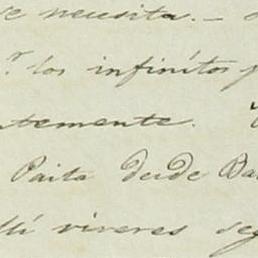 se necesita. –
r los infinitos
ntemente.
Paita desde Ba
llí viveres seg